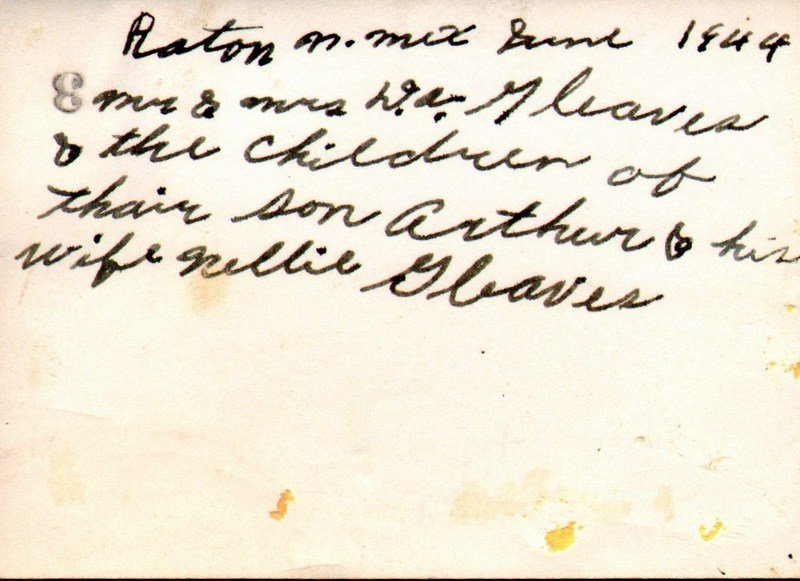 Raton n. mex June 1944
8 mr & mrs D.a. Gleaves
& the children of
thair son Arthur & his
wife nellie Gleaves